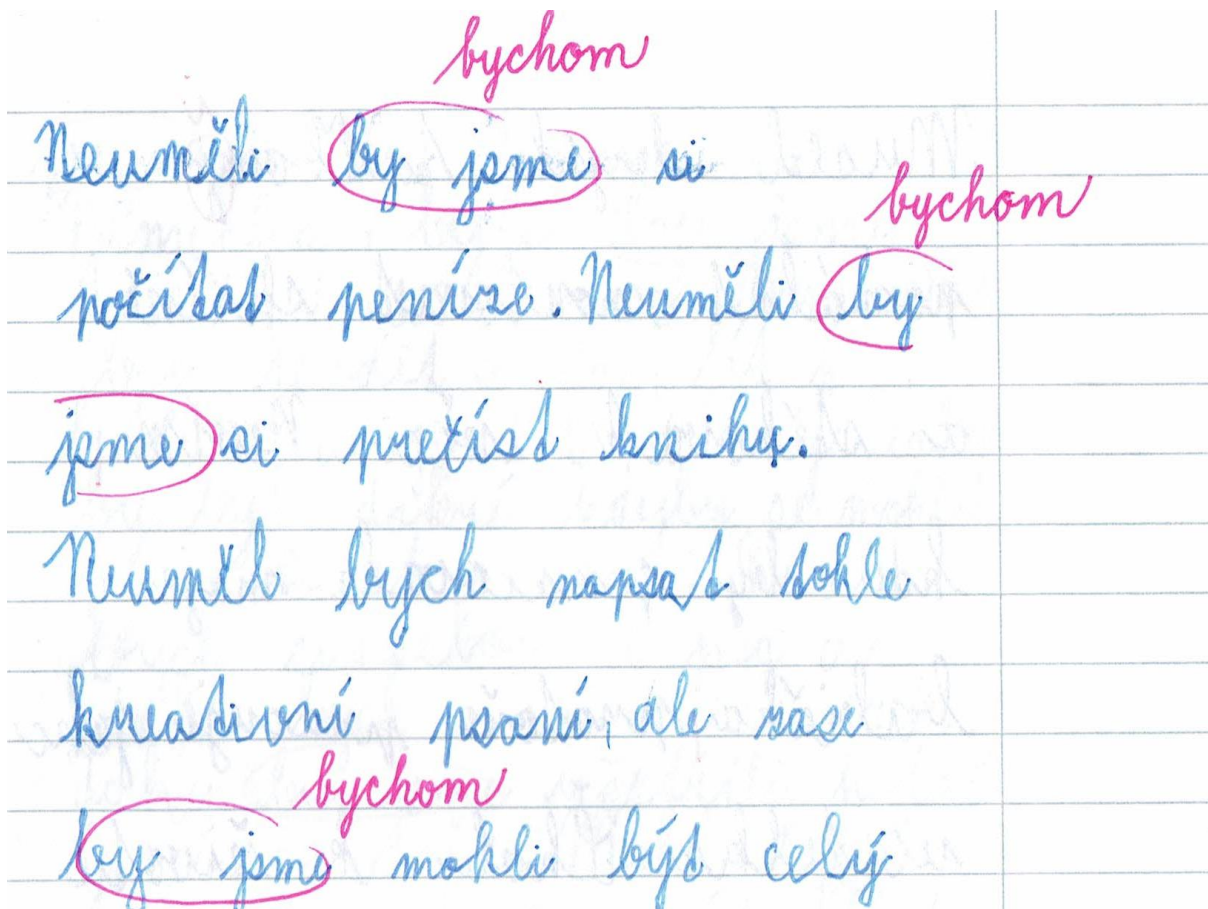 bychom
Neuměli by jsme si
bychom
počítat peníze. Neuměli by
jsme si prečíst knihu.
Neuměl bych napsat tohle
kreativní psaní, ale zase
bychom
by jsme mohli být celý